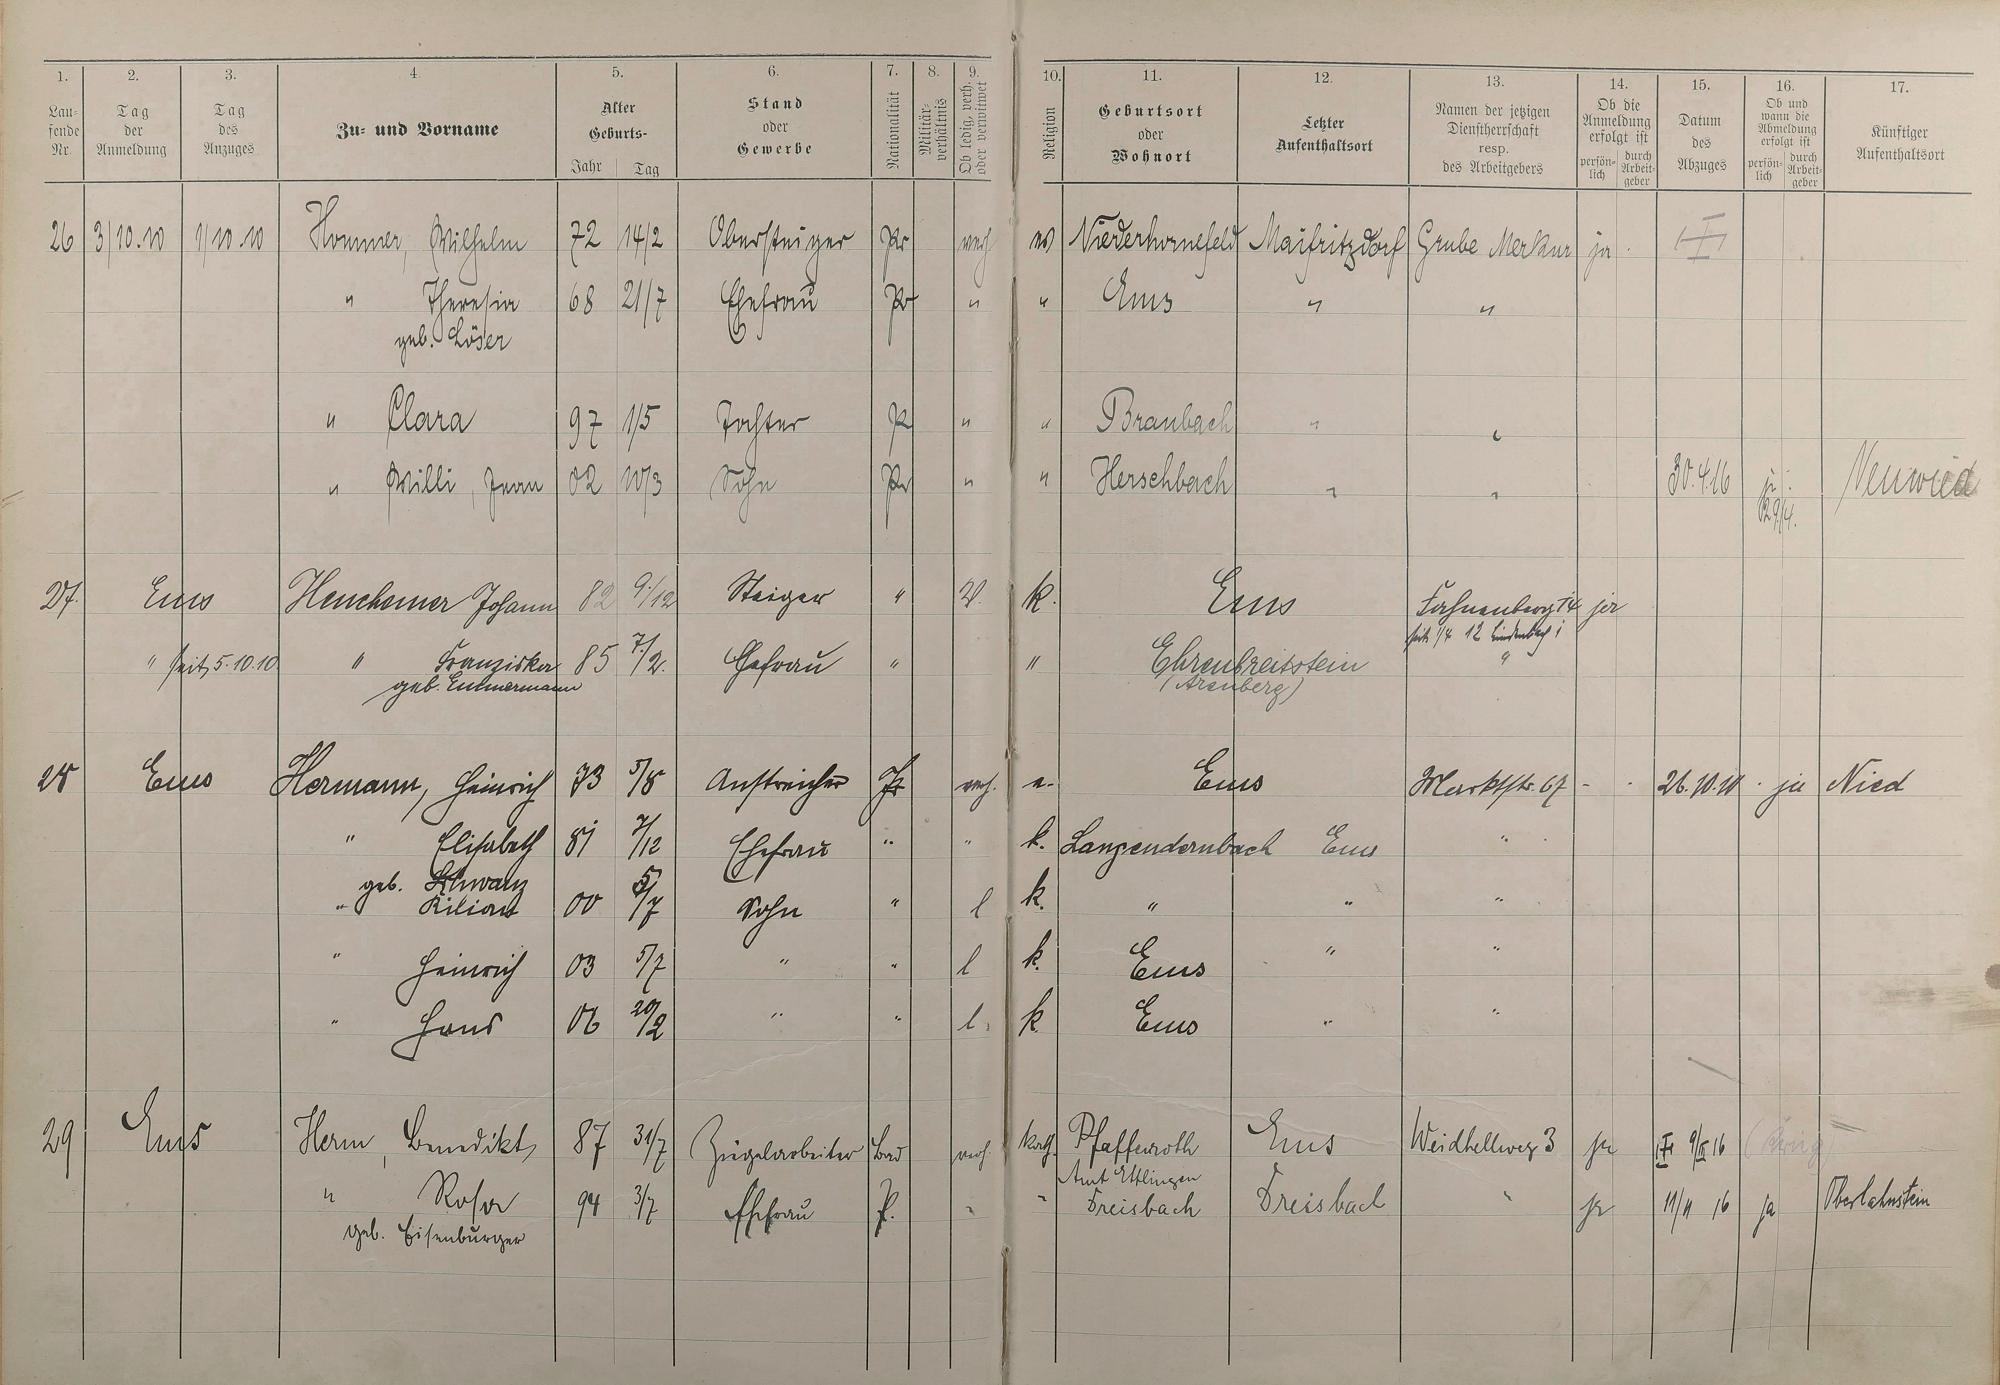 1. 2. 3. 4. 5. 6. 7. 8. 9. 10. 11. 12. 13. 14. 15. 16. 17.
Lau-
fende
Nr.
Tag
der
Anmeldung
Tag
des
Anzuges
Zu- und Vorname
Alter
Geburts-
Jahr Tag
Stand
oder
Gewerbe
Nationalität
Militär-
verhältnis
Ob ledig, verh.
oder verwitwet
Religion
Geburtsort
oder
Wohnort
Letzter
Aufenthaltsort
Namen der jetzigen
Dienstherrschaft
resp.
des Arbeitgebers
Ob die
Anmeldung
erfolgt ist
persön-
lich
durch
Arbeit-
geber
Datum
des
Abzuges
Ob und
wann die
Abmeldung
erfolgt ist
persön-
lich
durch
Arbeit-
geber
Künftiger
Aufenthaltsort
26 3/10.10 1/10.10 Hommer, Wilhelm 72 14/2 Obersteiger Pr verh ev Maifritzdorf Grube Merkur ja
" Theresia 68 21/7 Ehefrau Pr " " Ems " "
geb. Löser
" Clara 97 1/5 Tochter Pr " " Braubach "
" Willi, Jean 02 10/3 Sohn Pr " " Herschbach " " 30.4.16 Neuwied
29/4.
27. Ems Henchemer Johann 82 9/12 Steiger " V. k. Ems Fahnenberg 14 ja
seit 1/4 12 Lindenbach
" seit 5.10.10 " Franziska 85 7/2. Ehefrau " " Ehrenbreitstein "
geb. Emmermann (Arenberg)
28 Ems Hermann, Heinrich 73 5/8 Anstreicher Pr verh. e. Ems Marktstr. 67 - 26.10.10 ja Nied
" Elisabeth 81 7/12 Ehefrau " " k. Langendernbach Ems "
geb. Schwarz
" Kilian 00 5/7 Sohn " l k. " " "
" Heinrich 03 5/7 " " l k. Ems " "
" Hans 06 20/2 " " l. k Ems " "
29 Ems Herm, Benedikt 87 31/7 Ziegelarbeiter Bad verh. kath. Pfaffenroth Ems Weidhellweg 3 ja 16
Amt Ettlingen
" Rosa 94 3/7 Ehefrau P. " " Freisbach Freisbach " ja 11/11 16 ja Oberlahnstein
geb. Eisenburger